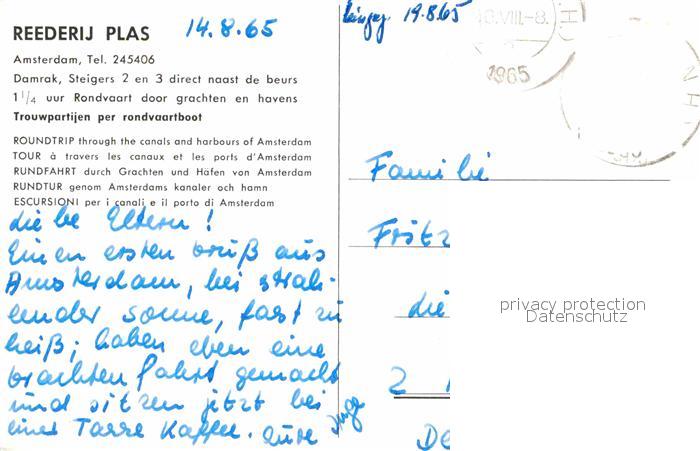 REEDERIJ PLAS
14.8.65
Amsterdam, Tel. 245406
Damrak, Steigers 2 en 3 direct naast de beurs
1 1/4 uur Rondvaart door grachten en havens
Trouwpartijen per rondvaartboot
ROUNDTRIP through the canals and harbours of Amsterdam
TOUR à travers les canaux et les ports d'Amsterdam
RUNDFAHRT durch Grachten und Häfen von Amsterdam
RUNDTUR genom Amsterdams kanaler och hamn
ESCURSIONI per i canali e il porto di Amsterdam
Liebe Eltern!
Einen ersten Gruß aus
Amsterdam, bei strah-
lender Sonne, fast zu
heiß; haben eben eine
Grachtenfahrt gemacht
und sitzen jetzt bei
einer Tasse Kaffee. Eure
Inge
eingeg. 19.8.65
.VIII.-8.
1965
Familie
Fritz
die
2
De
privacy protection
Datenschutz